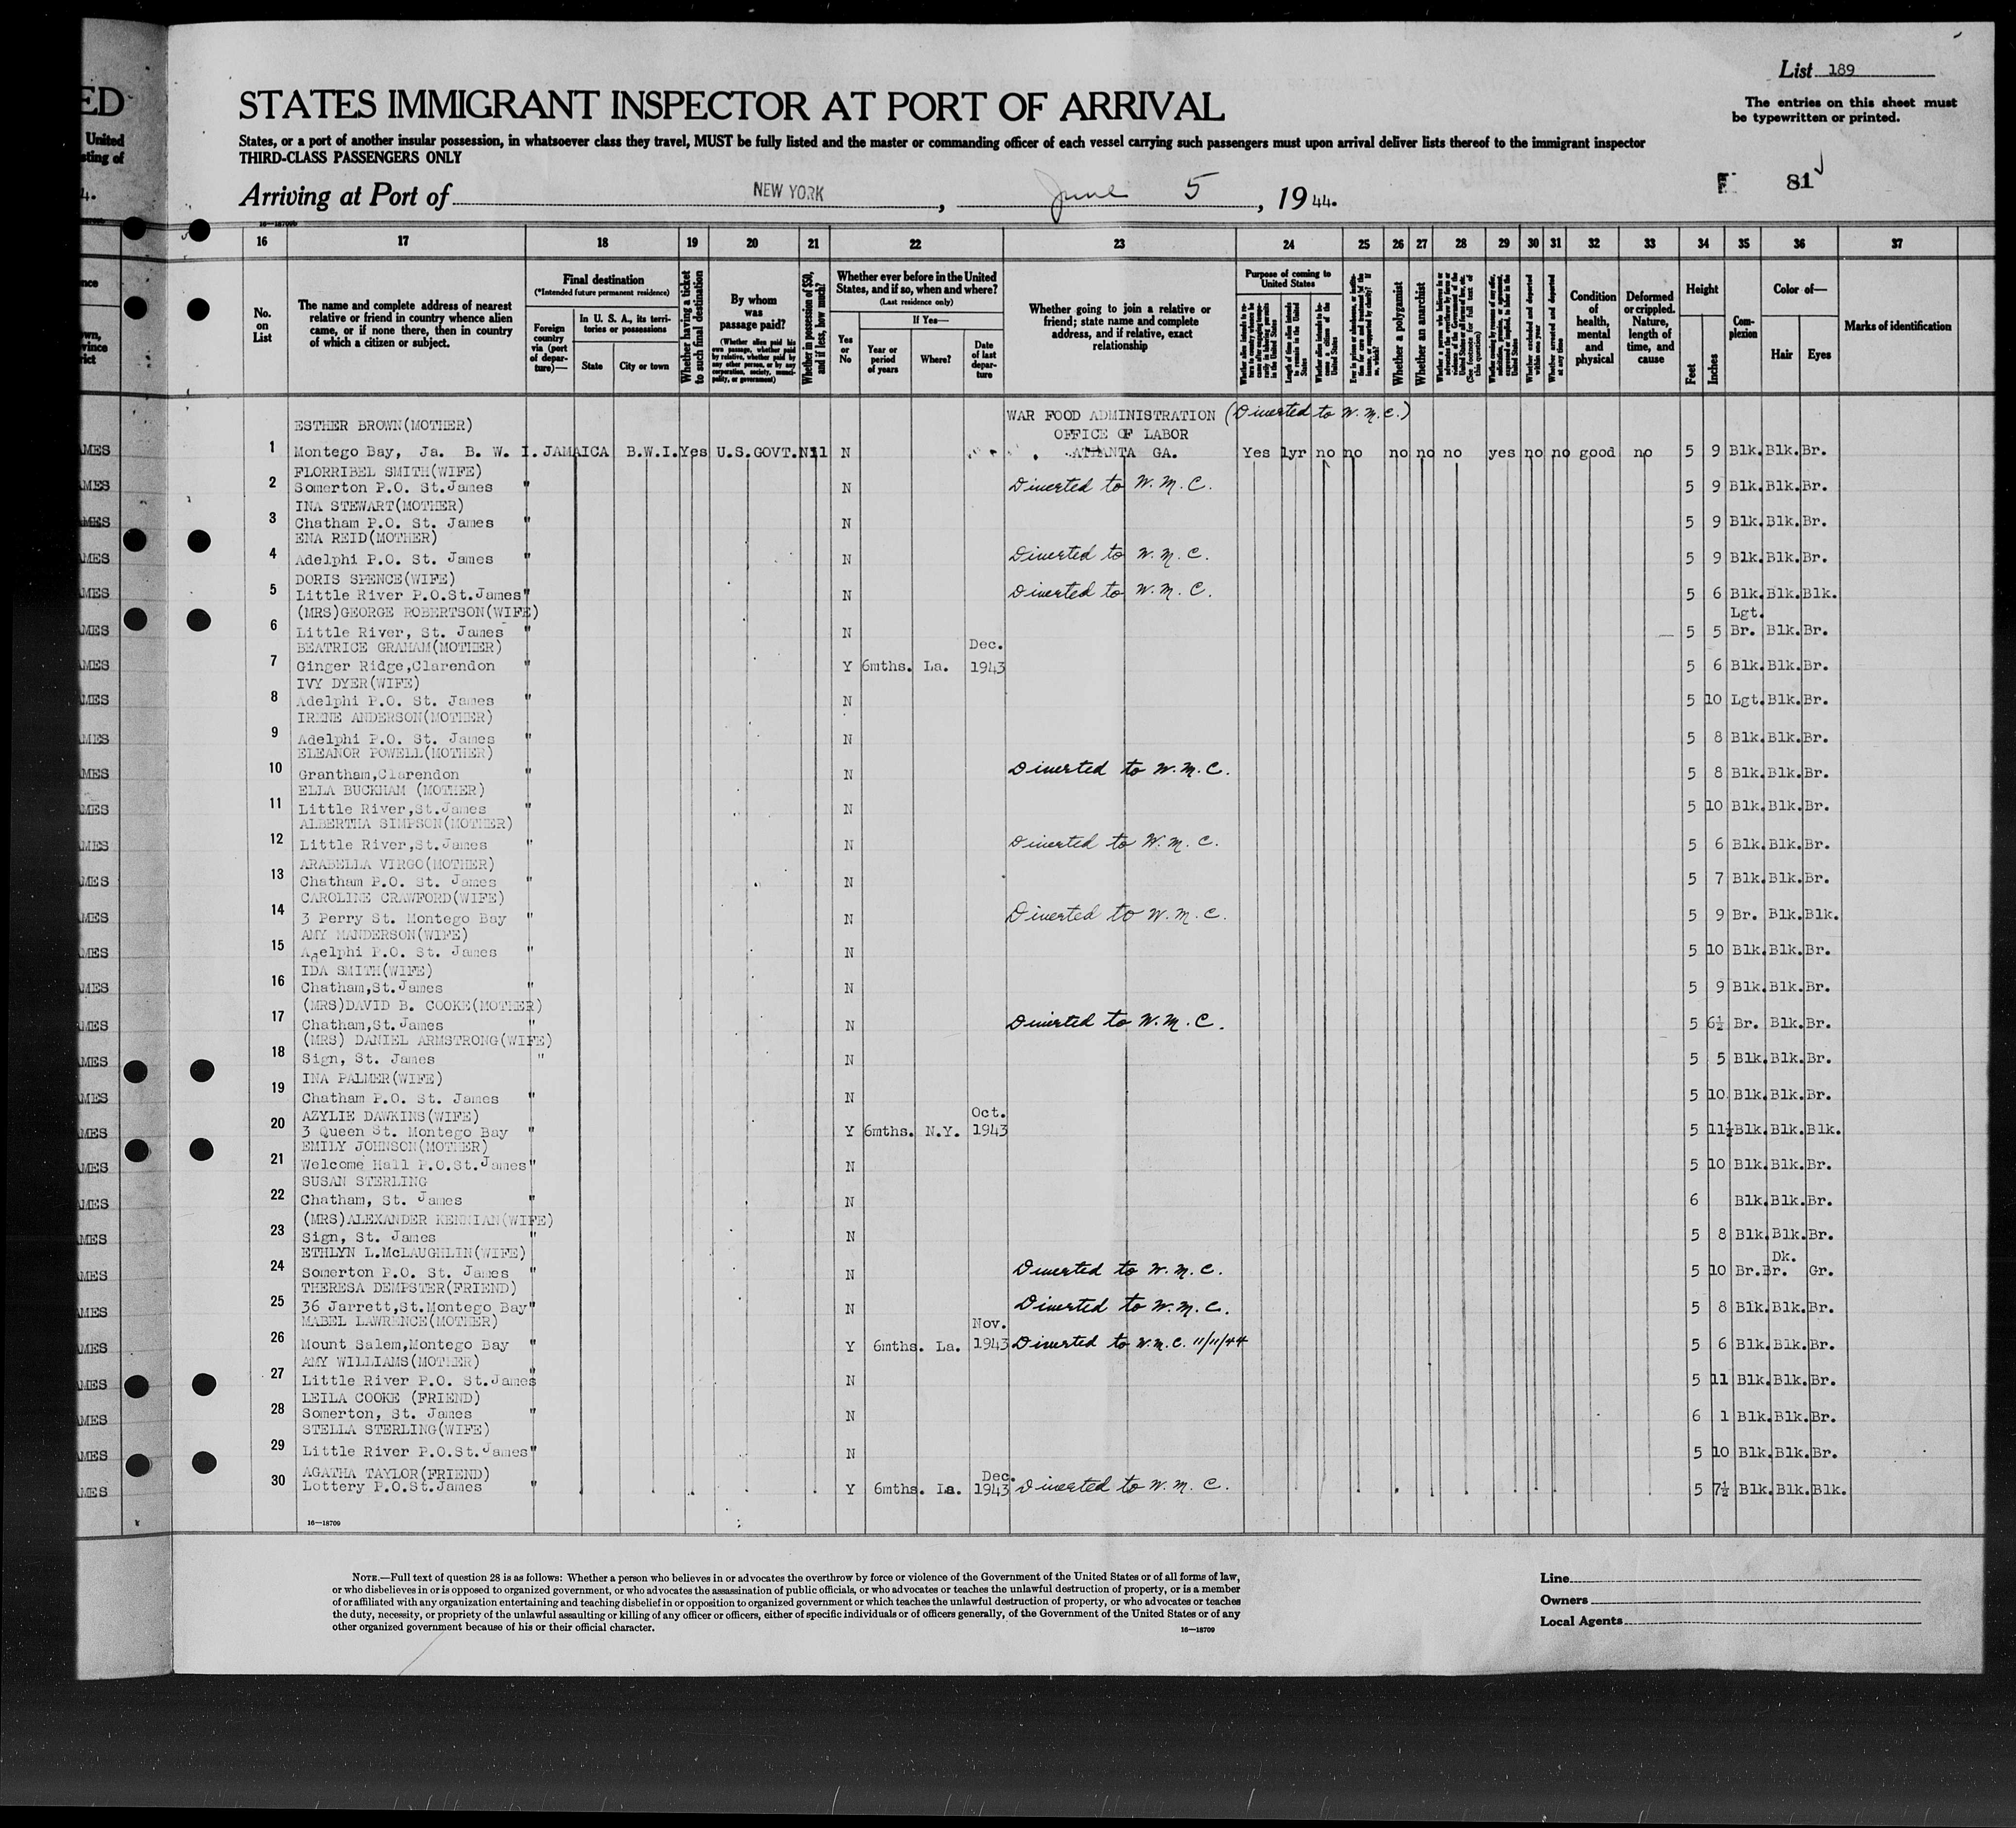 List 189
The entries on this sheet must
be typewritten or printed.
ED
STATES IMMIGRANT INSPECTOR AT PORT OF ARRIVAL
United
sting of
States, or a port of another insular possession, in whatsoever class they travel, MUST be fully listed and the master or commanding officer of each vessel carrying such passengers must upon arrival deliver lists thereof to the immigrant inspector
THIRD-CLASS PASSENGERS ONLY
81
Arriving at Port of NEW YORK, June 5, 1944.
16 17 18 19 20 21 22 23 24 25 26 27 28 29 30 31 32 33 34 35 36 37
No. on List
The name and complete address of nearest relative or friend in country whence alien came, or if none there, then in country of which a citizen or subject.
Final destination
(*Intended future permanent residence)
Foreign country via (port of departure)—
In U. S. A., its territories or possessions
State
City or town
Whether having a ticket to such final destination
By whom was passage paid?
(Whether alien paid his own passage, whether paid by relative, whether paid by any other person, or by any corporation, society, municipality, or government)
Whether in possession of $50, and if less, how much?
Whether ever before in the United States, and if so, when and where?
(Last residence only)
Yes or No
If Yes—
Year or period of years
Where?
Date of last departure
Whether going to join a relative or friend; state name and complete address, and if relative, exact relationship
Purpose of coming to United States
Whether a polygamist
Whether an anarchist
Condition of health, mental and physical
Deformed or crippled. Nature, length of time, and cause
Height
Feet
Inches
Complexion
Color of—
Hair
Eyes
Marks of identification
WAR FOOD ADMINISTRATION (Diverted to W.M.C.)
ESTHER BROWN(MOTHER)
OFFICE OF LABOR
1 Montego Bay, Ja. B. W. I. JAMAICA B.W.I. Yes U.S.GOVT. Nil N ATLANTA GA. Yes 1yr no no no no no yes no no good no 5 9 Blk. Blk. Br.
FLORRIBEL SMITH(WIFE)
2 Somerton P.O. St.James " N Diverted to W.M.C. 5 9 Blk. Blk. Br.
INA STEWART(MOTHER)
3 Chatham P.O. St. James " N 5 9 Blk. Blk. Br.
ENA REID(MOTHER)
4 Adelphi P.O. St. James " N Diverted to W.M.C. 5 9 Blk. Blk. Br.
DORIS SPENCE(WIFE)
5 Little River P.O.St.James " N Diverted to W.M.C. 5 6 Blk. Blk. Blk.
(MRS)GEORGE ROBERTSON(WIFE) Lgt.
6 Little River, St. James " N 5 5 Br. Blk. Br.
BEATRICE GRAHAM(MOTHER) Dec.
7 Ginger Ridge,Clarendon " Y 6mths. La. 1943 5 6 Blk. Blk. Br.
IVY DYER(WIFE)
8 Adelphi P.O. St. James " N 5 10 Lgt. Blk. Br.
IRENE ANDERSON(MOTHER)
9 Adelphi P.O. St. James " N 5 8 Blk. Blk. Br.
ELEANOR POWELL(MOTHER)
10 Grantham,Clarendon " N Diverted to W.M.C. 5 8 Blk. Blk. Br.
ELLA BUCKHAM (MOTHER)
11 Little River,St.James " N 5 10 Blk. Blk. Br.
ALBERTHA SIMPSON(MOTHER)
12 Little River,St.James " N Diverted to W.M.C. 5 6 Blk. Blk. Br.
ARABELLA VIRGO(MOTHER)
13 Chatham P.O. St. James " N 5 7 Blk. Blk. Br.
CAROLINE CRAWFORD(WIFE)
14 3 Perry St. Montego Bay " N Diverted to W.M.C. 5 9 Br. Blk. Blk.
AMY MANDERSON(WIFE)
15 Adelphi P.O. St. James " N 5 10 Blk. Blk. Br.
IDA SMITH(WIFE)
16 Chatham,St.James " N 5 9 Blk. Blk. Br.
(MRS)DAVID B. COOKE(MOTHER)
17 Chatham,St.James " N Diverted to W.M.C. 5 6½ Br. Blk. Br.
(MRS) DANIEL ARMSTRONG(WIFE)
18 Sign, St. James " N 5 5 Blk. Blk. Br.
INA PALMER(WIFE)
19 Chatham P.O. St. James " N 5 10 Blk. Blk. Br.
AZYLIE DAWKINS(WIFE) Oct.
20 3 Queen St. Montego Bay " Y 6mths. N.Y. 1943 5 11½ Blk. Blk. Blk.
EMILY JOHNSON(MOTHER)
21 Welcome Hall P.O.St.James " N 5 10 Blk. Blk. Br.
SUSAN STERLING
22 Chatham, St. James " N 6 Blk. Blk. Br.
(MRS)ALEXANDER KENNIAN(WIFE)
23 Sign, St. James " N 5 8 Blk. Blk. Br.
ETHLYN L.McLAUGHLIN(WIFE) Dk.
24 Somerton P.O. St. James " N Diverted to W.M.C. 5 10 Br. Br. Gr.
THERESA DEMPSTER(FRIEND)
25 36 Jarrett,St.Montego Bay " N Diverted to W.M.C. 5 8 Blk. Blk. Br.
MABEL LAWRENCE(MOTHER) Nov.
26 Mount Salem,Montego Bay " Y 6mths. La. 1943 Diverted to W.M.C. 11/11/44 5 6 Blk. Blk. Br.
AMY WILLIAMS(MOTHER)
27 Little River P.O. St.James " N 5 11 Blk. Blk. Br.
LEILA COOKE (FRIEND)
28 Somerton, St. James " N 6 1 Blk. Blk. Br.
STELLA STERLING(WIFE)
29 Little River P.O.St.James " N 5 10 Blk. Blk. Br.
AGATHA TAYLOR(FRIEND) Dec.
30 Lottery P.O.St.James " Y 6mths. La. 1943 Diverted to W.M.C. 5 7½ Blk. Blk. Blk.
16—18709
NOTE.—Full text of question 28 is as follows: Whether a person who believes in or advocates the overthrow by force or violence of the Government of the United States or of all forms of law,
or who disbelieves in or is opposed to organized government, or who advocates the assassination of public officials, or who advocates or teaches the unlawful destruction of property, or is a member
of or affiliated with any organization entertaining and teaching disbelief in or opposition to organized government or which teaches the unlawful destruction of property, or who advocates or teaches
the duty, necessity, or propriety of the unlawful assaulting or killing of any officer or officers, either of specific individuals or of officers generally, of the Government of the United States or of any
other organized government because of his or their official character.
16—18709
Line
Owners
Local Agents